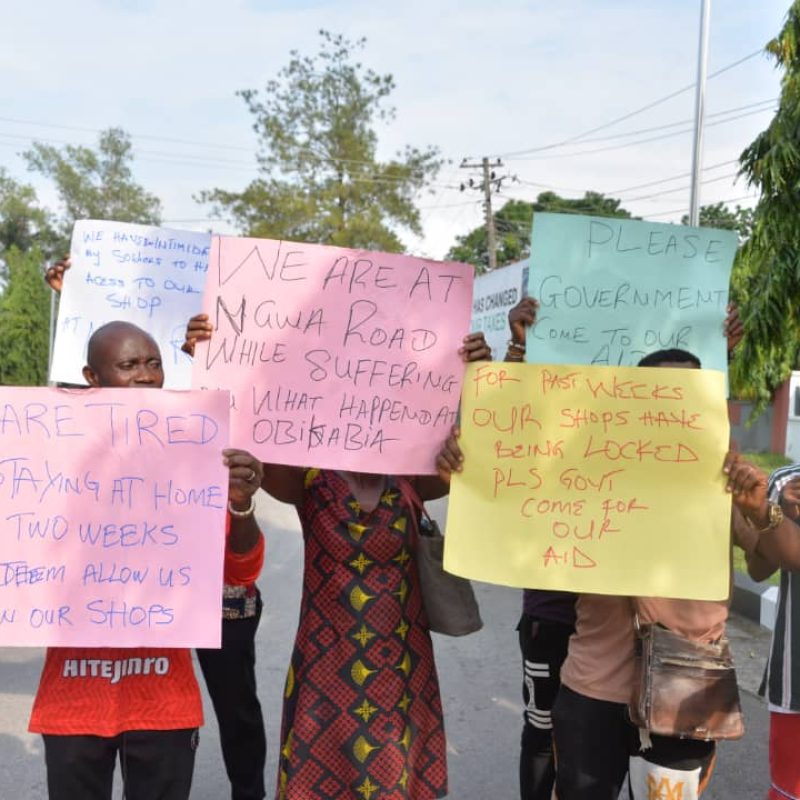 WE HAVE INTIMIDA
By SOLDIERS TO HA
ACESS TO OUR
SHOP
AT
WE ARE AT
NGWA ROAD
WHILE SUFFERING
WHAT HAPPEND AT
OBIKABIA
HAS CHANGED
TAXES
PLEASE
GOVERNMENT
COME TO OUR
AID
ARE TIRED
STAYING AT HOME
TWO WEEKS
ALLOW US
OUR SHOPS
FOR PAST WEEKS
OUR SHOPS HAVE
BEING LOCKED
PLS GOVT
COME FOR
OUR
AID
HITEJINRO